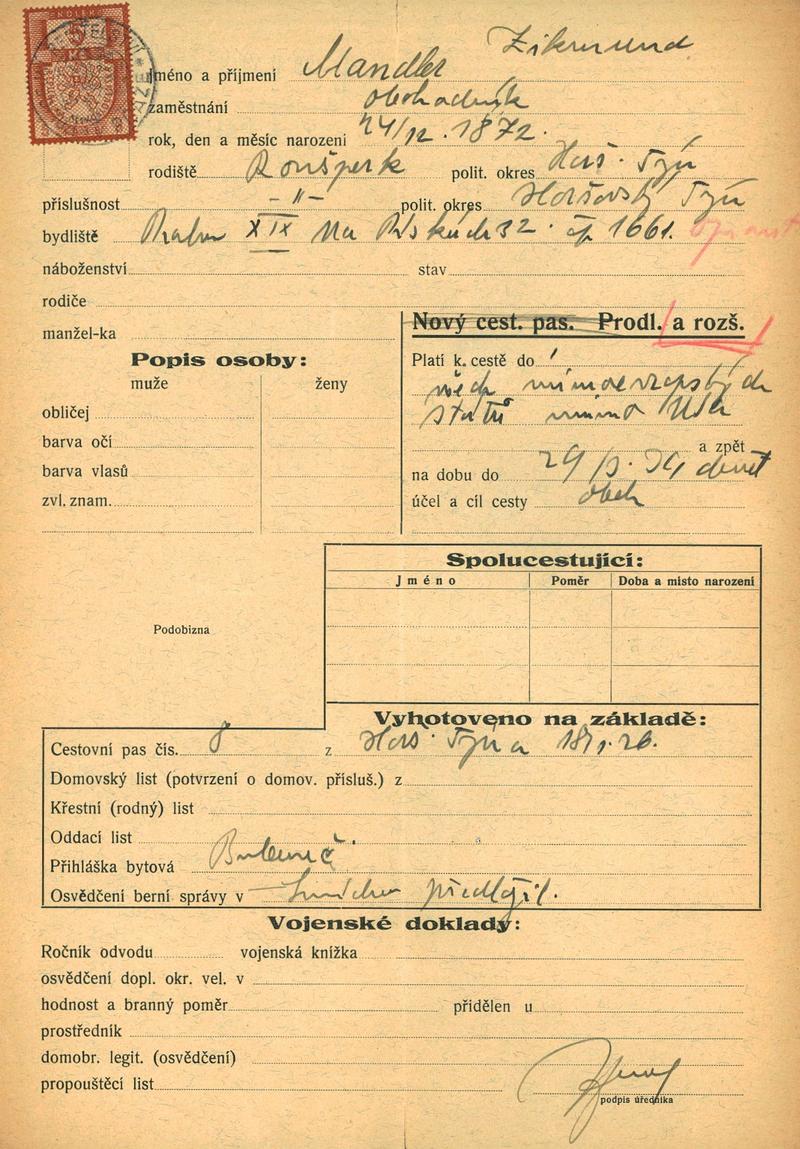 KOLEK
5
Zikmund
jméno a příjmení Mandler
zaměstnání obchodník
rok, den a měsíc narození 24/12. 1872.
rodiště Ronšperk polit. okres Horš. Týn
příslušnost -"- polit. okres Horšovský Týn
bydliště Praha XIX Na 32. čp 1661.
náboženství stav
rodiče
manžel-ka
Nový cest. pas. Prodl. a rozš.
Popis osoby:
muže ženy
obličej
barva očí
barva vlasů
zvl. znam.
Platí k. cestě do
všech mimoevropských
států mimo USA
a zpět
na dobu do 29/
účel a cíl cesty obch
Spolucestující:
Jméno Poměr Doba a místo narození
Podobizna
Vyhotoveno na základě:
Cestovní pas čís. 8 z Horš. Týna
Domovský list (potvrzení o domov. přísluš.) z
Křestní (rodný) list
Oddací list
Přihláška bytová Bubeneč.
Osvědčení berní správy v Smíchov předložil.
Vojenské doklady:
Ročník odvodu vojenská knížka
osvědčení dopl. okr. vel. v
hodnost a branný poměr přidělen u
prostředník
domobr. legit. (osvědčení)
propouštěcí list
podpis úředníka